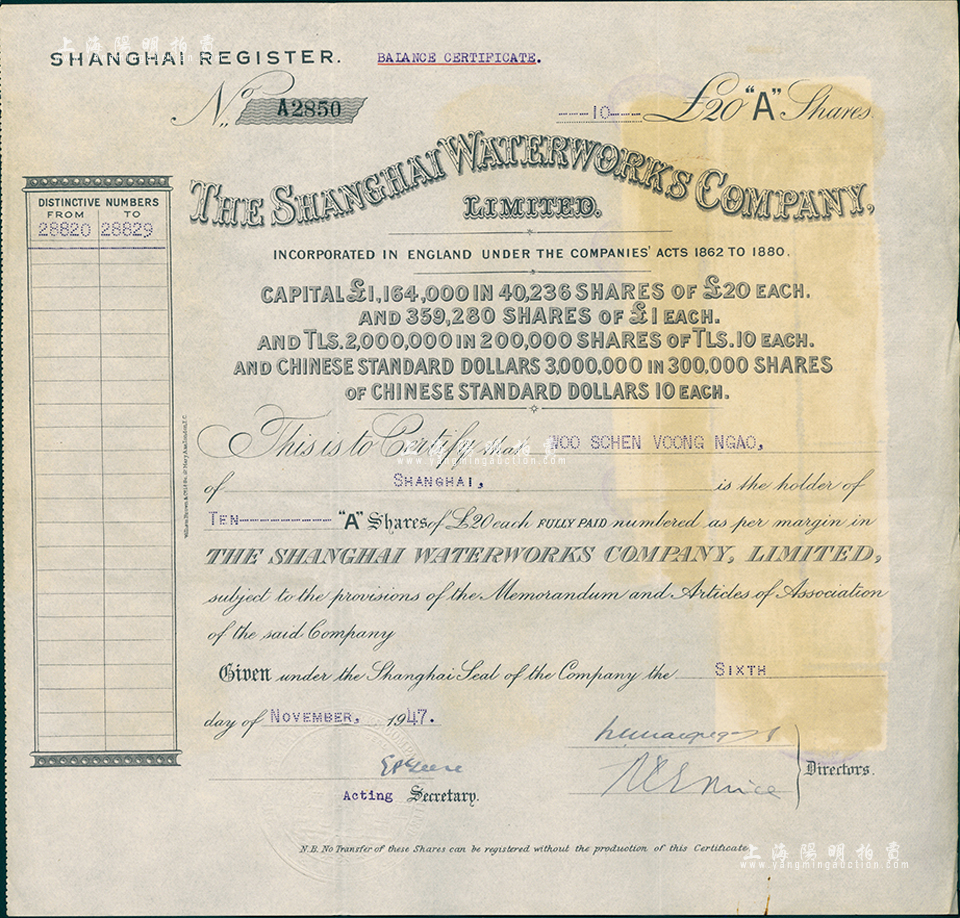 上海陽明拍賣
www.yangmingauction.com
SHANGHAI REGISTER. BALANCE CERTIFICATE.
No. A2850 ----10---- £20 "A" Shares.
THE SHANGHAI WATERWORKS COMPANY,
LIMITED.
DISTINCTIVE NUMBERS
FROM TO
28820 28829
INCORPORATED IN ENGLAND UNDER THE COMPANIES' ACTS 1862 TO 1880.
CAPITAL £1,164,000 IN 40,236 SHARES OF £20 EACH.
AND 359,280 SHARES OF £1 EACH.
AND TLS. 2,000,000 IN 200,000 SHARES OF TLS. 10 EACH.
AND CHINESE STANDARD DOLLARS 3,000,000 IN 300,000 SHARES
OF CHINESE STANDARD DOLLARS 10 EACH.
This is to Certify that WOO SCHEN VOONG NGAO,
上海陽明拍賣
www.yangmingauction.com
of SHANGHAI, is the holder of
TEN---------- "A" Shares of £20 each FULLY PAID numbered as per margin in
THE SHANGHAI WATERWORKS COMPANY, LIMITED,
subject to the provisions of the Memorandum and Articles of Association
of the said Company
Given under the Shanghai Seal of the Company the SIXTH
day of NOVEMBER, 1947.
Directors.
Acting Secretary.
N.B. No Transfer of these Shares can be registered without the production of this Certificate.
上海陽明拍賣
www.yangmingauction.com